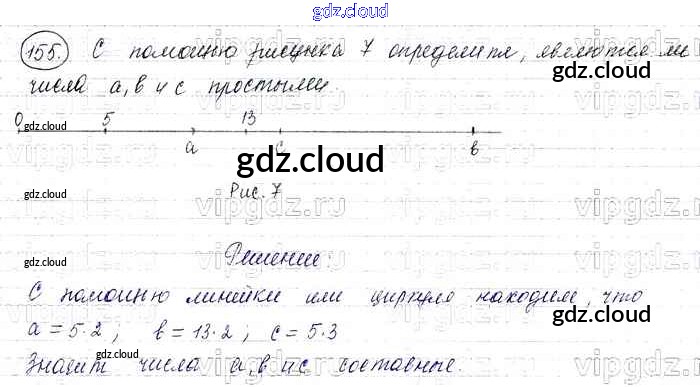 gdz.cloud
155. С помощью рисунка 7 определите, являются ли
gdz.cloud
числа а, в и с простыми.
gdz.cloud
0 5 13
gdz.cloud
а с в
gdz.cloud
vipgdz.ru vipgdz.ru vipgdz.ru
Рис. 7
Решение:
gdz.cloud
С помощью линейки или циркуля находим, что
gdz.cloud
а = 5·2; в = 13·2; с = 5·3
vipgdz.ru vipgdz.ru vipgdz.ru
gdz.cloud
Значит числа а, в и с составные.